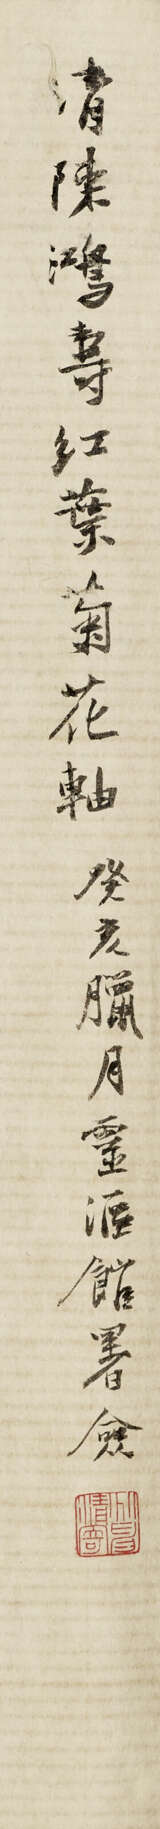 清陳鴻壽紅葉菊花軸
癸亥臘月靈漚館署僉